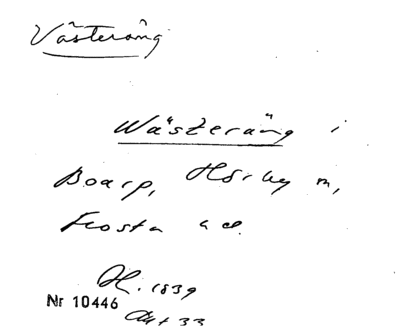 Västeräng
Wästeräng i
Boarp, Hörby m,
Frosta hd.
H. 1839
Nr 10446
Akt 33